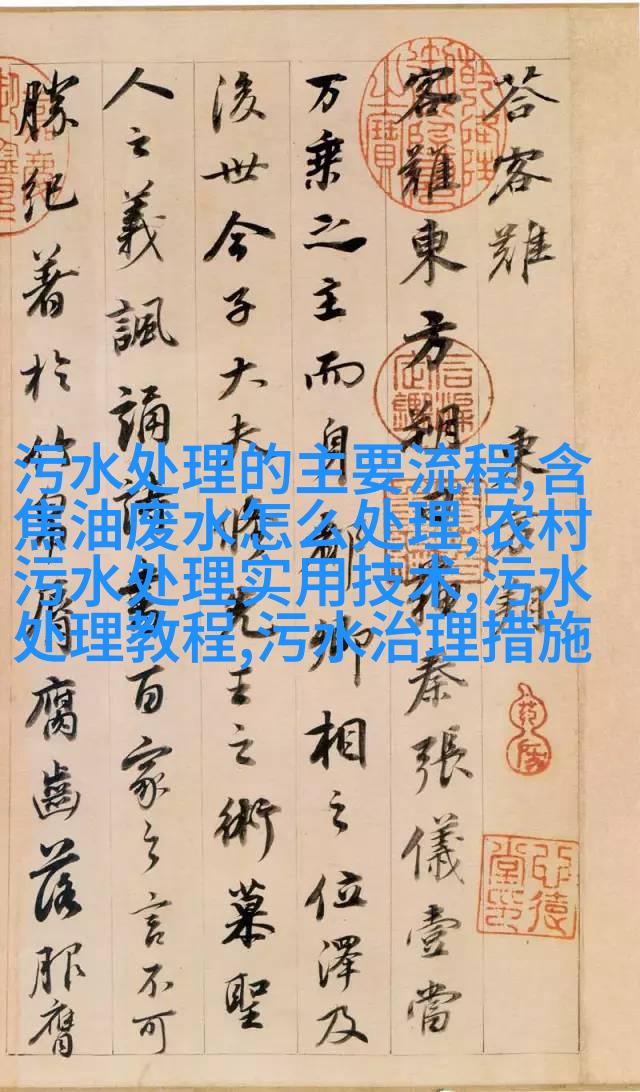 荅客難 東方朔
客難東方朔曰蘇秦張儀壹當
万乗之主而身都卿相之位澤及
後世今子大夫脩先王之術慕聖
人之義諷誦詩書百家之言不可
勝紀著於竹帛脣腐齒落服膺
污水处理的主要流程,含
焦油废水怎么处理,农村
污水处理实用技术,污水
处理教程,污水治理措施